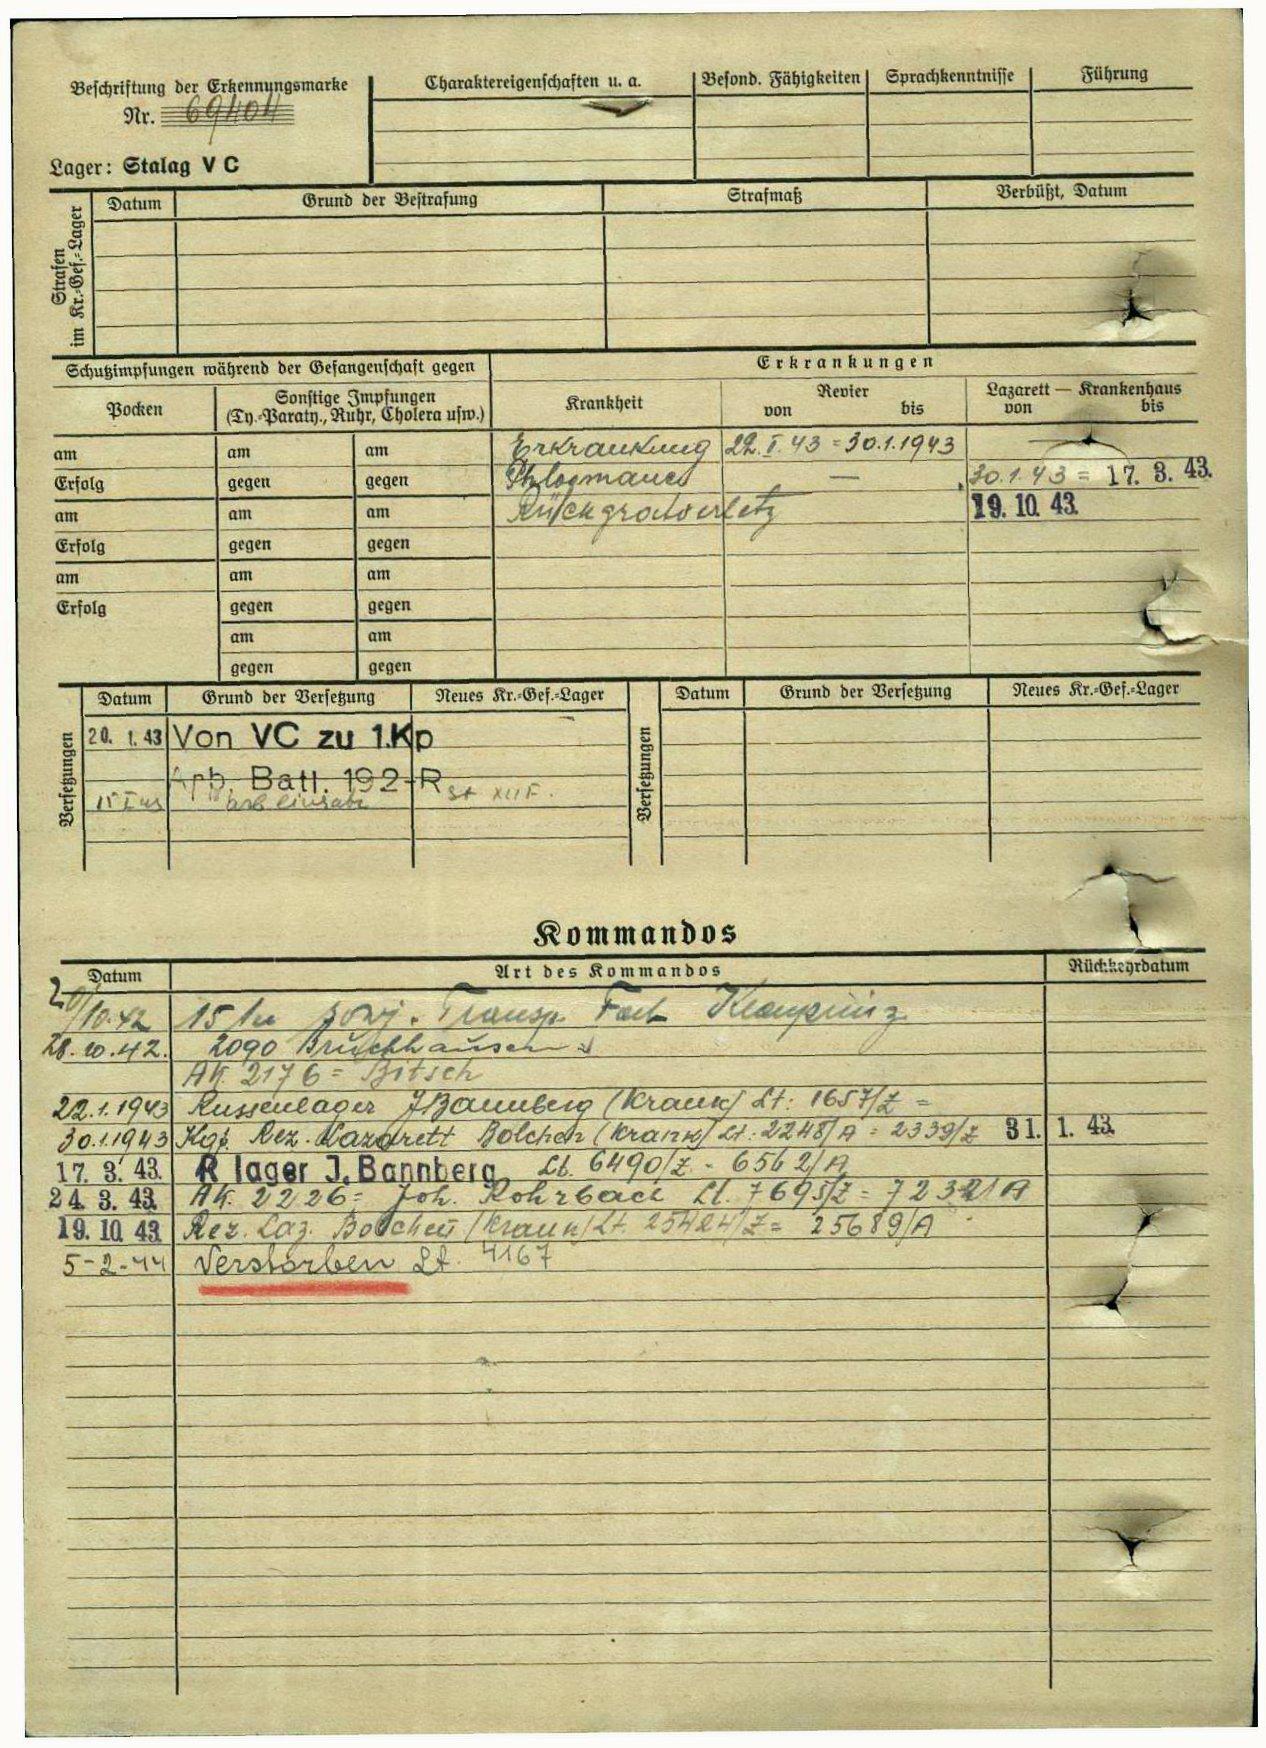 Beschriftung der Erkennungsmarke
Nr. 69404
Lager: Stalag V C
Charaktereigenschaften u. a.
Besond. Fähigkeiten
Sprachkenntnisse
Führung
Strafen im Kr.-Gef.-Lager
Datum
Grund der Bestrafung
Strafmaß
Verbüßt, Datum
Schutzimpfungen während der Gefangenschaft gegen
Pocken
Sonstige Impfungen
(Ty.-Paraty., Ruhr, Cholera usw.)
am am am
Erfolg gegen gegen
am am am
Erfolg gegen gegen
am am am
Erfolg gegen gegen
am am
gegen gegen
Erkrankungen
Krankheit
Revier
von bis
Lazarett — Krankenhaus
von bis
Erkrankung 22.I.43 = 30.1.1943 —
— 30.1.43 = 17. 3. 43.
19. 10. 43.
Versetzungen
Datum Grund der Versetzung Neues Kr.-Gef.-Lager
20. 1. 43 Von VC zu 1.Kp
Arb. Batt. 192-R
Arb einsatz St XII F.
Versetzungen
Datum Grund der Versetzung Neues Kr.-Gef.-Lager
Kommandos
Datum Art des Kommandos Rückkehrdatum
20/10.42 Transp.
28.10.42. 2090 Bruchhausen
AK. 2176 = Bitsch
22.1.1943 Russenlager J Bannberg (Krank) Lt: 1657/Z =
30.1.1943 Kgf. Rez. Lazarett Bolchen (Krank) Lt: 2248/A = 2339/Z 31. 1. 43.
17. 3. 43. R lager J. Bannberg Lt. 6490/Z - 6562/A
24. 3. 43. AK. 2226 = Joh. Rohrbach Lt. 7695/Z =
19. 10. 43. Rez. Laz. Bolchen (Krank) Lt. 25424/Z = 25689/A
5-2-44 Verstorben Lt. 4167